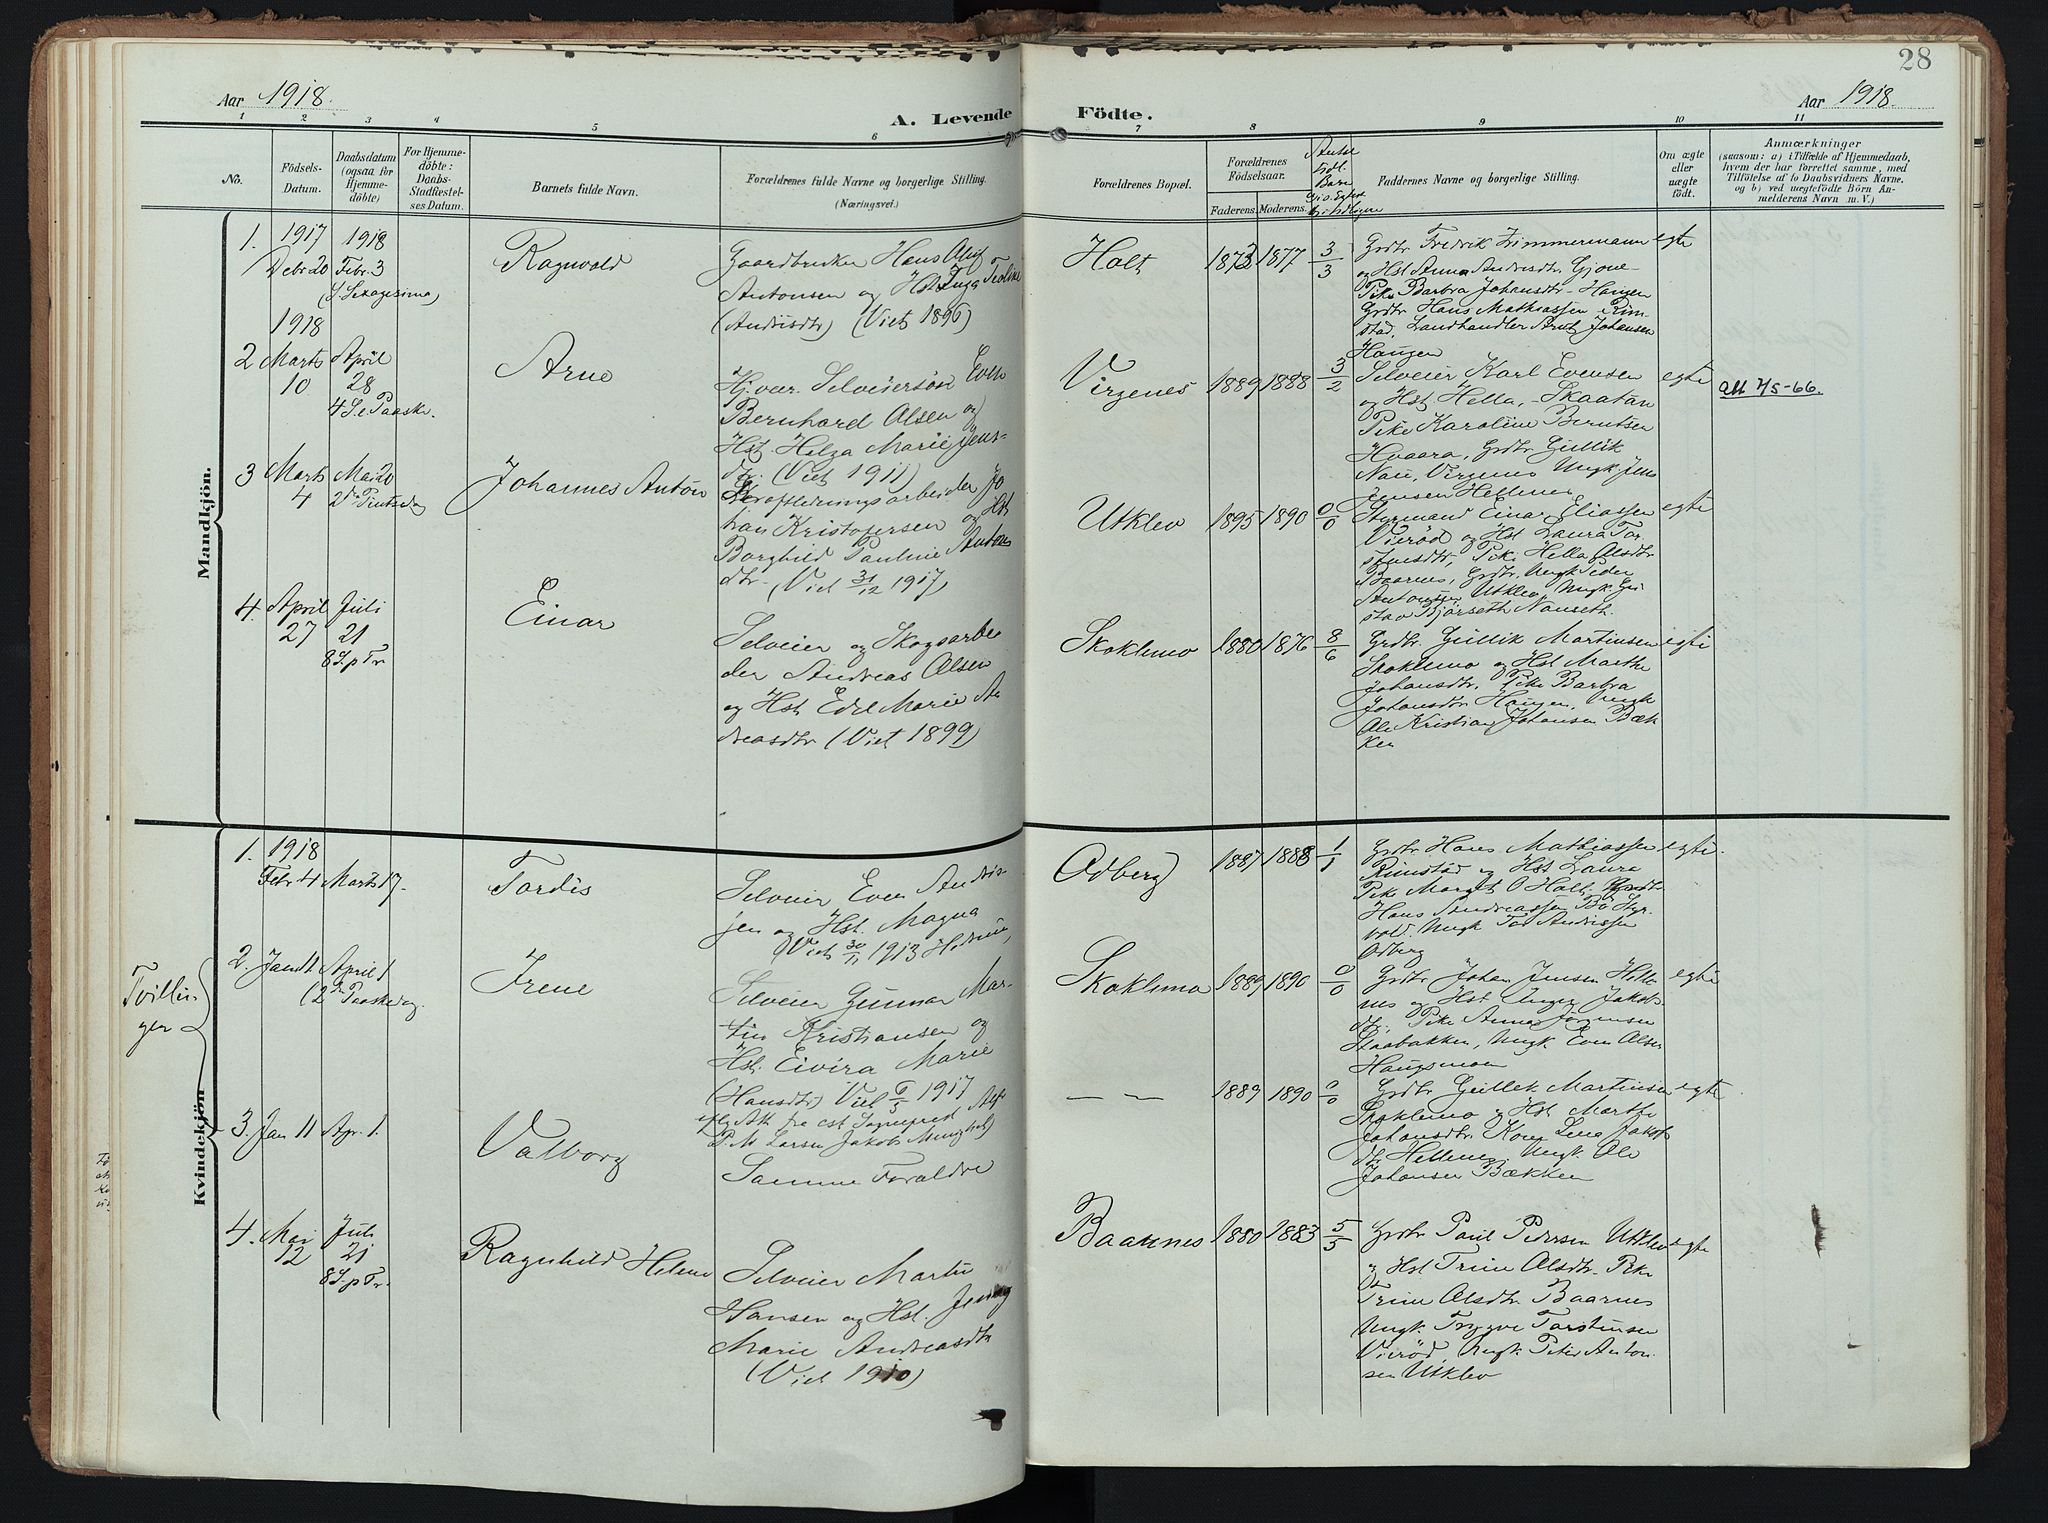 28
Aar 1918.
A. Levende
Födte.
Aar 1918.
1 2 3 4 5 6 7 8 9 10 11
No.
Födsels-
Datum.
Daabsdatum
(ogsaa for
Hjemme-
döbte)
For Hjemme-
döbte:
Daabs-
Stadfæstel-
ses Datum.
Barnets fulde Navn.
Forældrenes fulde Navne og borgerlige Stilling.
(Næringsvei.)
Forældrenes Bopæl.
Forældrenes
Födselsaar.
Faderens. Moderens.
Faddernes Navne og borgerlige Stilling.
Om ægte
eller
uægte
födt.
Anmærkninger
(saasom: a) i Tilfælde af Hjemmedaab,
hvem der har forrettet samme, med
Tilföielse af to Daabsvidners Navne.
og b) ved uægtefödte Börn An-
melderens Navn m. V.)
Mandkjön.
1. 1917 1918
Debr 20 Febr. 3
(S. Sexagesima)
Ragnvald
Gaardbruker Hans Alif
Antonsen og Hst Inga Teoline
(Andrisdtr) (Viet 1896)
Holt
1873 1877 3/3
Grdbr Fredrik Zimmermann
og Hst Anna Andrisdtr. Gjone-
Pike Barbra Johansdtr- Haugen
Grdbr Hans Mathiassen Rim-
stad, Landhandler Johansen
Haugen
egte
1918
2 Marts April
10 28
4 S. e Paaske.
Arne
Hj.vær. Selveiersön Even
Bernhard Olsen og
Hst. Helga Marie Jens-
dtr. (Viet 1911)
Virgenes
1889 1888 3/2
Selveier Karl Evensen
og Hst Hella, Skaatan
Pike Karoline Berntsen
Hvaara, Grdbr Gullik
Virgenes Ungk Jens
Jensen Hellenes
egte
att 7/5-66.
3 Marts Mai 20
4 2den Pintsedag
Johannes Anton
Kraftledningsarbeider Jo
han Kristofersen og Hst
Borghild Pauline Antons
dtr- (Viet 31/12 1917)
Utklev
1895 1890 0/0
Styrmand Einar Eliassen
Vieröd og Hst Laura Tor
stensdtr, Pike Hella Olsdtr
Baarnes, Grdbr. Ungk Peder
Antonsen Utklev, Ungk. Gu
stav Bjerseth Nanseth.
egte
4. April Juli
27 21
8 S. p Tr.
Einar
Selveier og Skogsarbei
der Andreas Olsen
og Hst Edel Marie An
dreasdtr (Viet 1899)
Skoklemo
1880 1876 8/6
Grdbr. Gullik Martinsen
Skoklemo og Hst Marthe
Johansdtr, Pike Barbra
Johansdtr Haugen, Ungk
Ole Kristian Johansen Bæk
ken
egte
Kvindekjön
1. 1918
Febr 4 Marts 17.
Tordis
Selveier Even Andris-
sen og Hst. Magna
(Viet 30/11 1913 Hedrum,
Odberg
1887 1888 1/1
Grdbr Hans Mathiassen
Rimstad og Hst Laura
Pike Margit O Holt, Grdbr.
Hans Andreassen Bö Styr-
vold. Ungk Tor Andrissen
Odberg
egte.
Tvillin
ger
2. Jan 11 April 1
(2den Paaskedag
Irene
Selveier Gunnar Mar-
tin Kristiansen og
Hst. Elvira Marie
(Hansdtr) Viet 1917
Skoklemo
1889 1890 0/0
Grdbr Johan Jensen Helle
nes og Hst Inger Jakobs
dtr. Pike Anna Jörgensen
Staabakken, Ungk. Even Olsen
Haugsmoen
egte
3. Jan 11 Apr. 1.
Valborg
Samme Foraldre
— —
1889 1890 0/0
Grdbr Gullek Martinsen
Skoklemo og Hst Marthe
Johansdtr. Kone Lina Jakobs
dtr Hellenes, Ungk Ole
Johansen Bækken
egte
4. Mai Juli
12 21
8 S. p Tr.
Ragnhild Helene
Selveier Martin
Hansen og Hst. Jenny
Marie Andreasdtr
(Viet 1910)
Baarnes
1880 1883 5/5
Grdbr Paul Pedersen Utklev
og Hst Trine Olsdtr. Pike
Trine Olsdtr Baarnes
Ungk. Trygve Torstensen
Vieröd, Ungk. Peter Anton
sen Utklev
egte